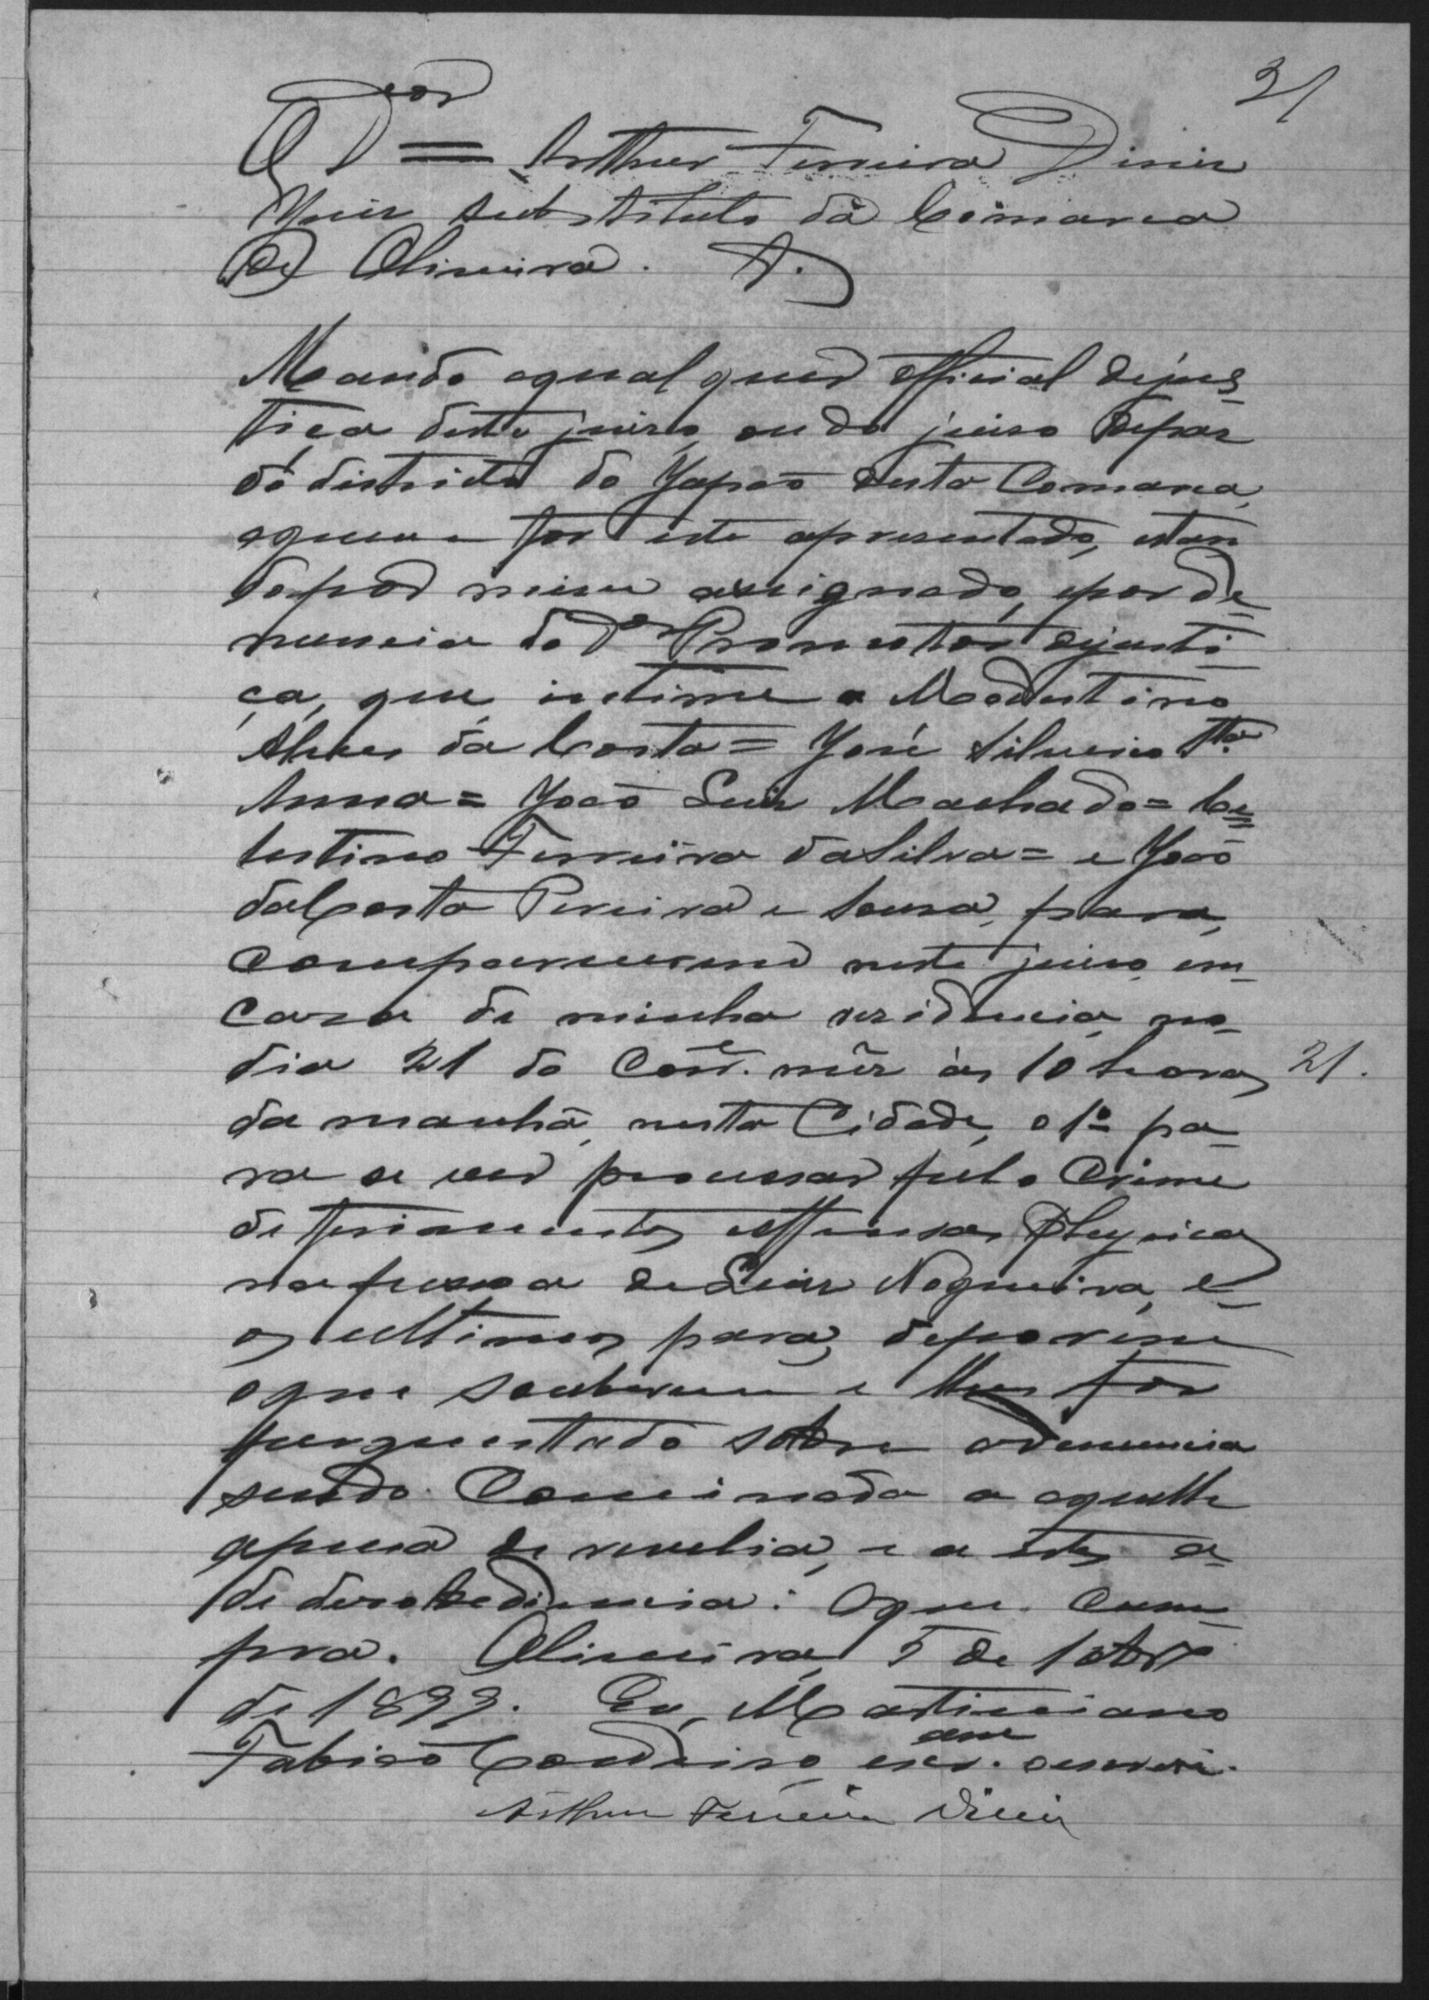 31
O Dor Arthur Ferreira Diniz
Juiz substituto da Comarca
de Oliveira. &.
Mando aqualquer official dejus-
tiça deste juiso, ou do juiso depaz
do districto do Japão desta Comarca,
aquem for este apresentado, estan
dopor mim assignado, epor de-
nuncia do Dor Promotor dejusti-
ça, que intime a Modestino
Alves da Costa = José Silverio Sta
Anna = João Luiz Machado = Ce=
lestino Ferreira daSilva = e João
daCosta Pereira e Sousa, para,
comparecerem neste juiso, em-
casa de minha residencia, no-
dia 21 do Corre. mez ás 10 horas
21.
da manhã, nesta Cidade, o 1º pa-
ra se ver processar pelo Crime
de ferimentos offensas physicas
napessoa deLuiz Nogueira, e-
os ultimos para, deporem
oque souberem e lhes for
perguntado sobre adenuncia
sendo Cominada a aquelle
apena de revelia, e a estes a-
de desobediencia: Oque Cum-
pra. Oliveira, 5 de 10br
de 1899. Eu, Martiniano
Fabião Cordeiro, escr. ame oescrevi.
Arthur Ferreira Diniz